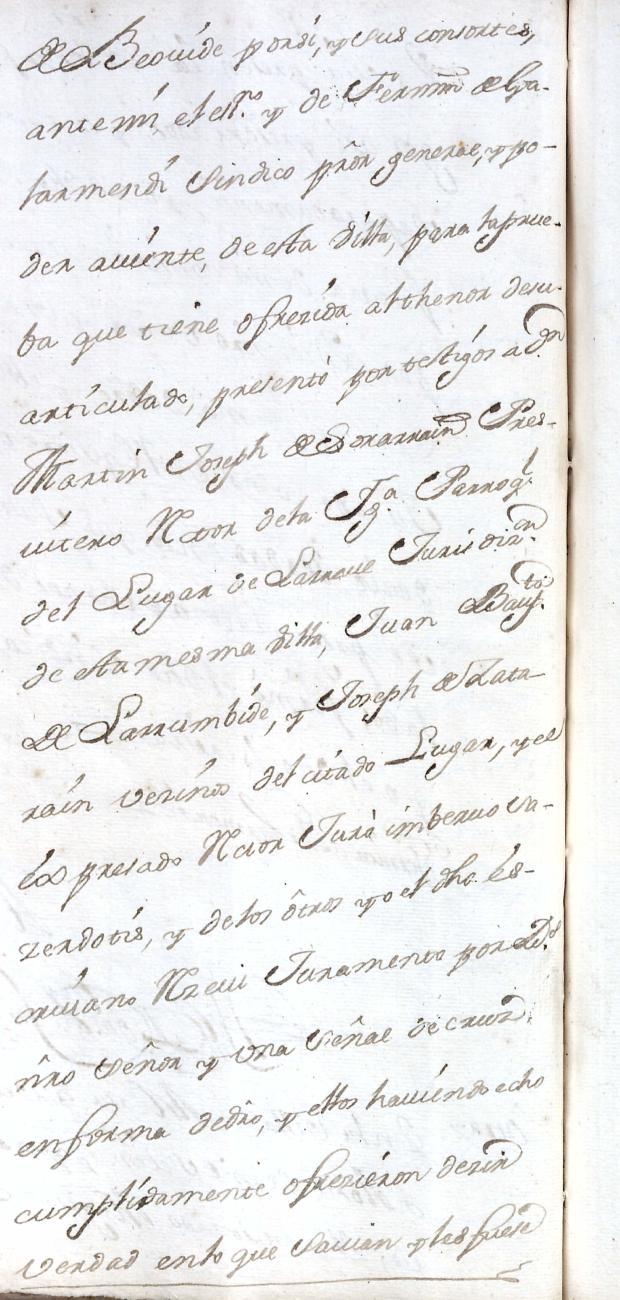 de Beovide por sí, y sus consortes,
ante mí el es.no y de Fermin de Ga-
larmendi Sindico prôr general, y po-
der aviente, de esta Villa, para la prue-
ba que tiene ofrezida al thenor de su
articulado, presentó por testigos a Dn
Martin Joseph de Sorarrain Pres-
vitero Rector de la Ig.a Parroq.l
del Lugar de Larraul Jurisdiz.on
de esta mesma Villa, Juan Baup.ta
de Larrumbide, y Joseph de Zata-
rain vezinos del citado Lugar, y el
expresado Rector Juró imberuo sa-
zerdotis, y de los ôtros yo el dho es-
crivano Rzevi Juramento por Ds
nrô Señor y una Señal de cruz
en forma de drô, y ellos haviendo echo
cumplidamente ofrezieron dezir
verdad en lo que savian y les fuese